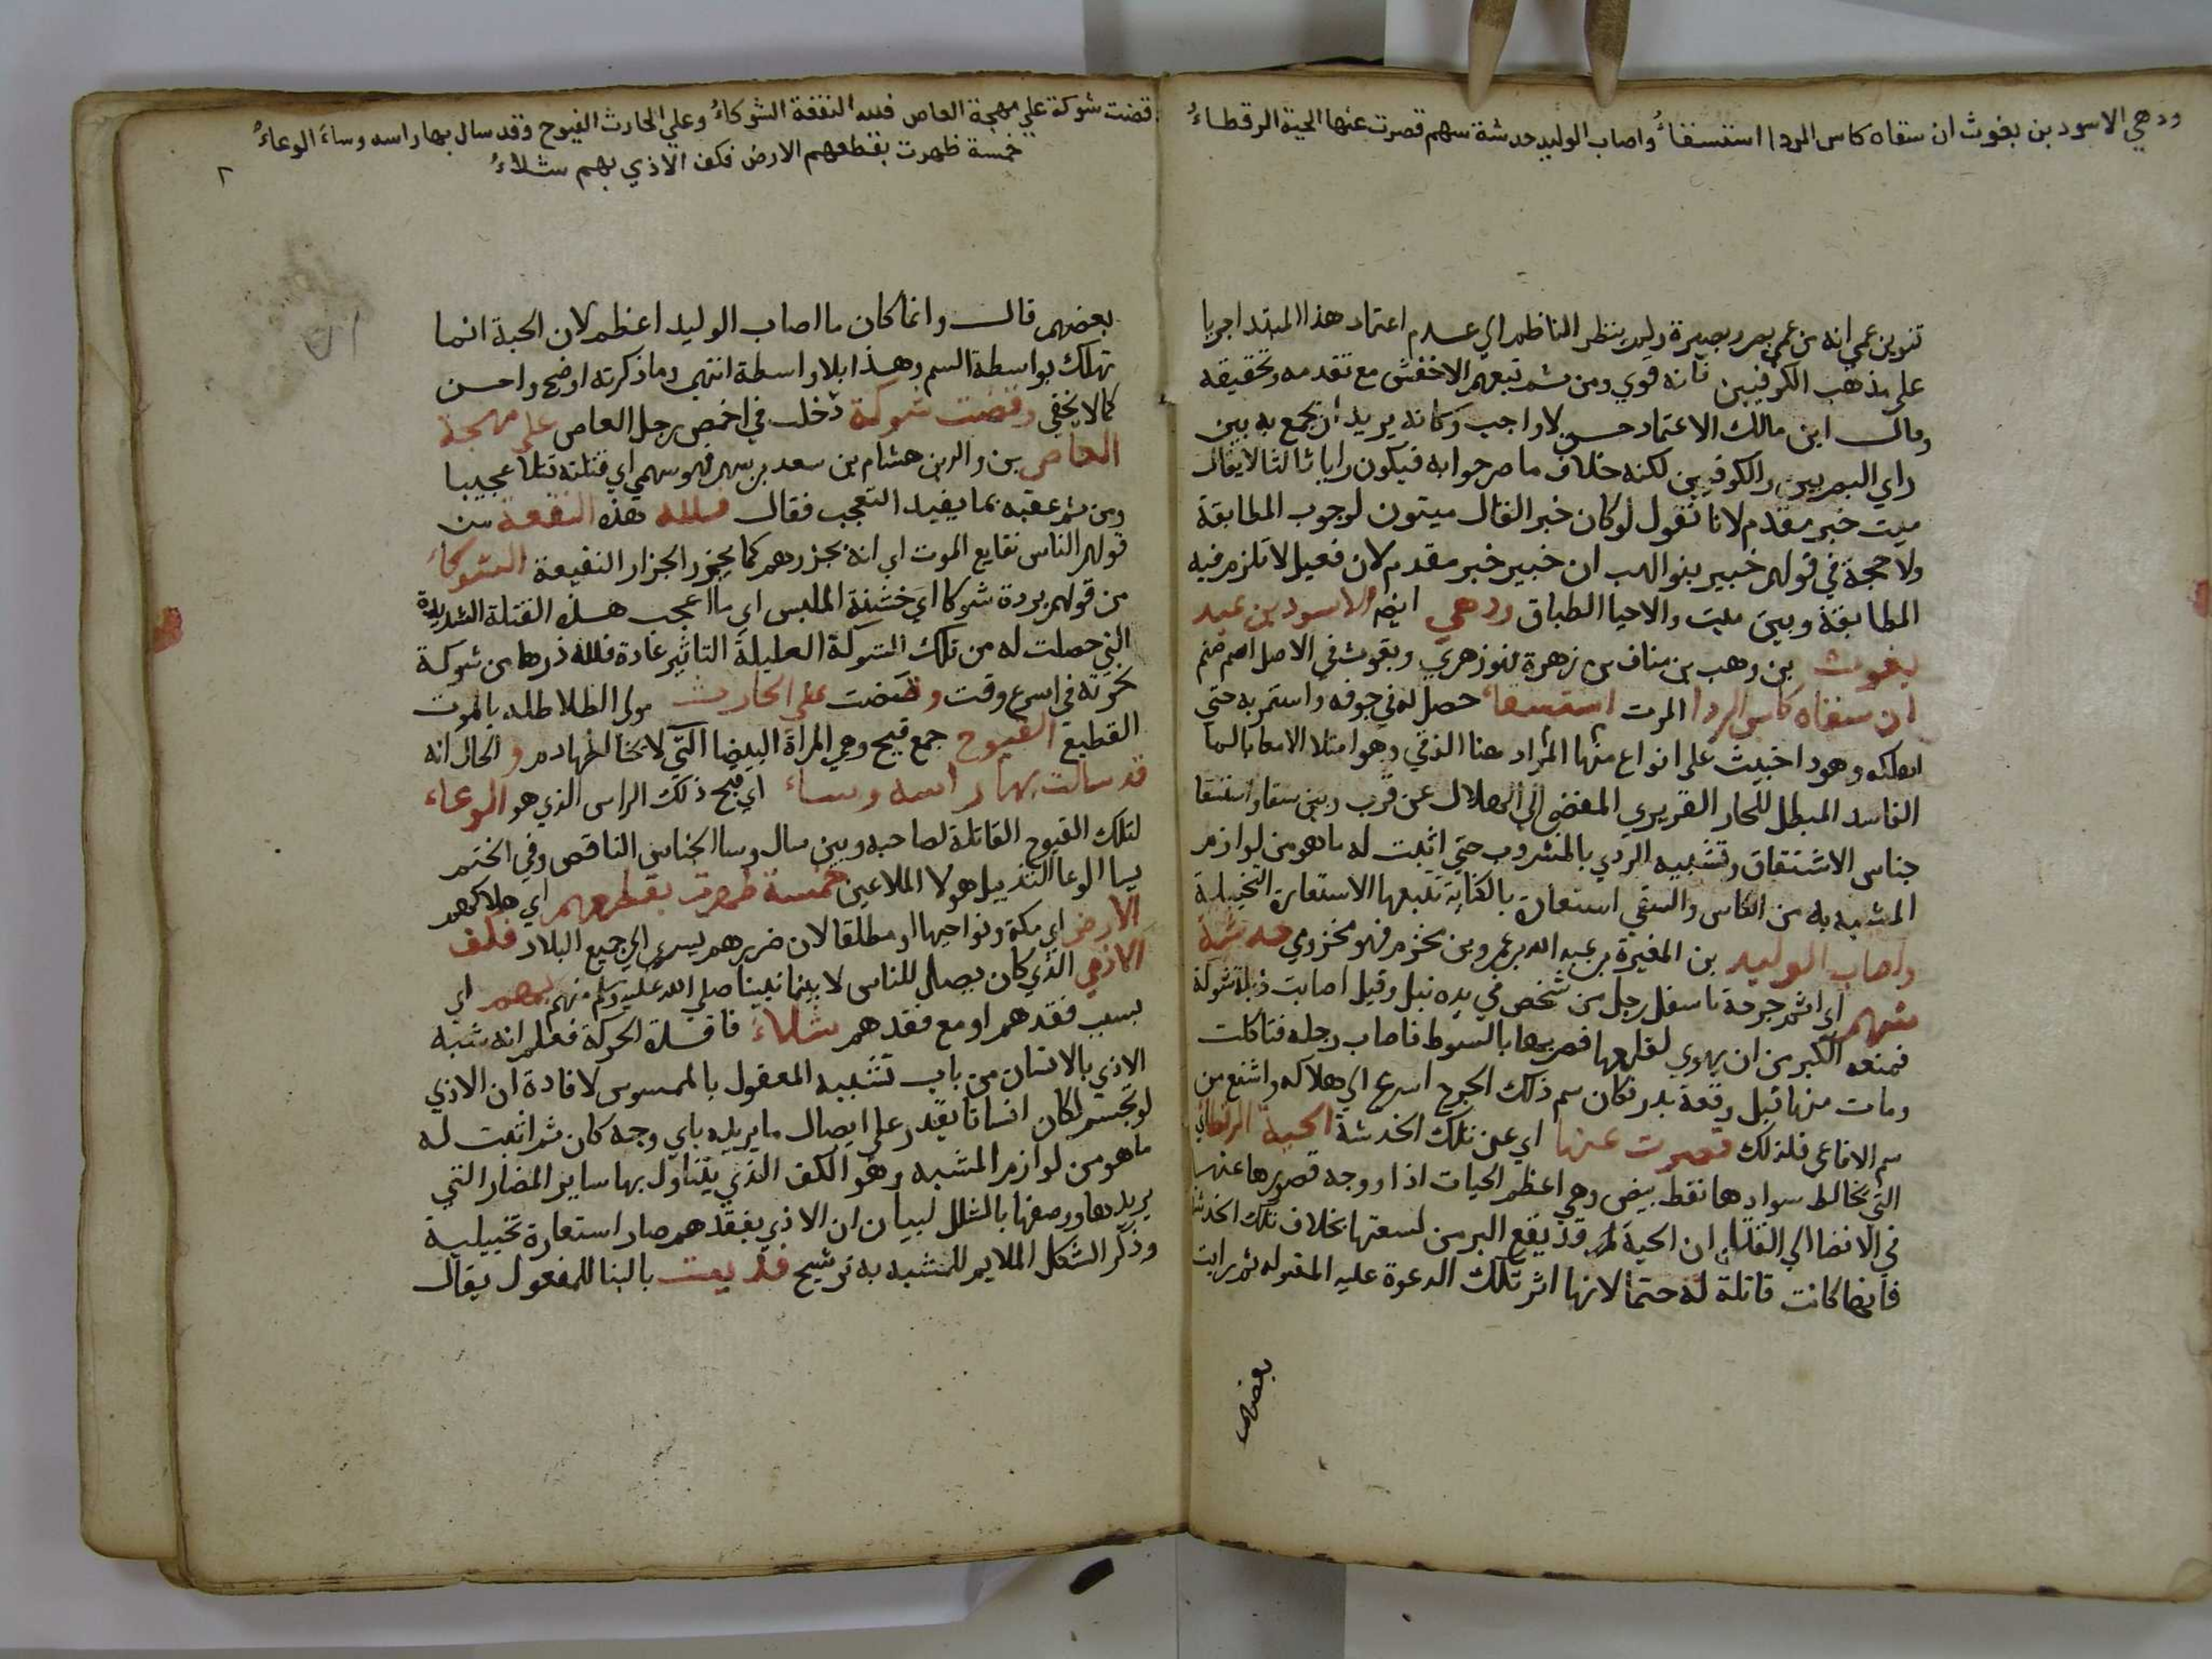 ودهي الاسود بن يغوث ان سقاه كاس الردا استسقاءُ واصاب الوليد خدشة سهم قصرت عنها الحية الرقطاءُ
تنوين عمي انه من عمي بصر وبصيرة ولم ينظر الناظم الي عدم اعتماد هذا المبتدا جريا
علي مذهب الكوفيين فانه قوي ومن ثم تبعهم الاخفش مع تقدمه وتحقيقه
وقال ابن مالك الاعتماد حسن لا واجب وكانه يريد ان يجمع به بين
راي البصريين والكوفيين لكنه خلاف ما صرحوا به فيكون رايا ثالثا لا يقال
ميت خبر مقدم لانا نقول لو كان خبر القال ميتون لوجوب المطابقة
ولا حجة في قولهم خبير بنو الهب ان خبير خبر مقدم لان فعيل لا تلزم فيه
المطابقة وبين ميت والاحيا الطباق ودهي ايضا الاسود بن عبد
يغوث بن وهب بن مناف بن زهرة فهو زهري ويغوث في الاصل اسم صنم
ان سقاه كاس الردا الموت استسقاء حصل له في جوفه واستمر به حتي
اهلكه وهو داخبيث علي انواع منها المراد هنا الزقي وهو امتلا الامعا بالما
الفاسد المبطل للحار الغريزي المفضي الي الهلاك عن قرب وبين سقا واستسقا
جناس الاشتقاق وتشبيه الردي بالمشروب حتي اثبت له ما هو من لوازم
المشبه به من الكاس والسقي استعارة بالكناية تتبعها الاستعارة التخييلية
واصاب الوليد بن المغيرة بن عبد الله بن عمر وبن مخزوم فهو مخزومي خدشة
سهم اي اثر جرحة باسفل رجل من شخص في يده نبل وقيل اصابت ذيله شوكة
فمنعه الكبر من ان يهوي لقلعها فضربها بالسوط فاصاب رجله فتاكلت
ومات منها قبل وقعة بدر فكان سم ذلك الجرح اسرع الي هلاكه واشنع من
سم الافاعي فلذلك قصرت عنها اي عن تلك الخدشة الحية الرقطا
التي يخالط سوادها نقط بيض وهي اعظم الحيات اذا ووجه قصورها عنها
في الافضا الي القتل ان الحية قد يقع البر من لسعتها بخلاف تلك الخدشة
فانها كانت قاتلة له حتما لانها اثر تلك الدعوة عليه المقبوله ثم رايت
بعضهم
قضت شوكة علي مهجة العاص فلله النقعة الشوكاءُ وعلي الحارث القيوح وقد سال بها راسه وساء الوعاءُ
خمسة طهرت بقطعهم الارض فكف الاذي بهم شلاءُ
٢
بعضهم قال وانما كان ما اصاب الوليد اعظم لان الحية انما
تهلك بواسطة السم وهذا بلا واسطة انتهي وما ذكرته اوضح واحسن
كما لا يخفي وقضت شوكة دخلت في اخمص رجل العاص علي مهجة
العاص بن وائل بن هشام بن سعد بن سهم فهو سهمي اي قتلته قتلا عجيبا
ومن ثم عقبه بما يفيد التعجب فقال فلله هذه النقعة من
قولهم الناس نقايع الموت اي انه يجزرهم كما يجزر الجزار النقيعة الشوكاء
من قولهم بردة شوكا اي خشنة الملبس اي ما اعجب هذه القتلة الشديدة
التي حصلت له من تلك الشوكة العليلة التاثير عادة فلله درها من شوكة
نحرته في اسرع وقت وقضت علي الحارث مولي الطلاطله بالموت
القطيع القيوح جمع قيح وهي المراة البيضا التي لا يخالطها دم والحال انه
قد سالت بها راسه وساء اي قبح ذلك الراس الذي هو الوعاء
لتلك القيوح القاتلة لصاحبه وبين سال وسا الجناس الناقص وفي الختم
بسا الوعا التذييل هولا الملاعين خمسة طهرت بقطعهم اي هلاكهم
الارض اي مكة ونواحيها او مطلقا لان ضررهم يسري الي جميع البلاد فكف
الاذي الذي كان يصل للناس لا سيما نبينا صلي الله عليه وسلم منهم بهم اي
بسبب فقدهم او مع فقدهم شلاء فاقدة الحركة فعلم انه شبه
الاذي بالانسان من باب تشبيه المعقول بالمحسوس لافادة ان الاذي
لو تجسم لكان انسانا يقدر علي ايصال ما يريده باي وجه كان ثم اثبت له
ما هو من لوازم المشبه وهو الكف الذي يتناول بها ساير المضار التي
يريدها ووصفها بالشلل لبيان ان الاذي بفقدهم صار استعارة تخييلية
وذكر الشكل الملايم للمشبه به ترشيح فديت بالبنا للمفعول يقال